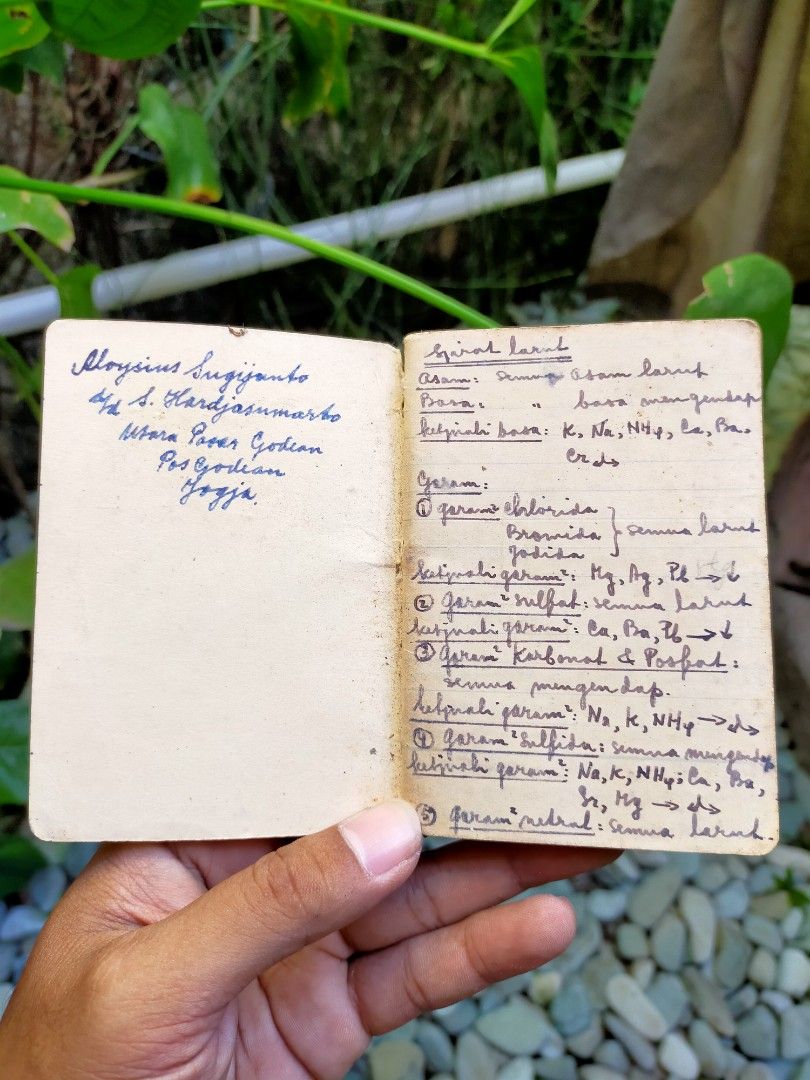 Aloysius Sugijanto
d/a S. Hardjasumarto
Utara Pasar Godean
Pos Godean
Jogja.
Sifat larut
Asam: semua asam larut
Basa: " basa mengendap
ketjuali basa: K, Na, NH₄, Ca, Ba,
Garam:
① garam² Chlorida
Bromida } semua larut
Jodida
ketjuali garam²: Hg, Ag, Pb → ↓
② Garam² Sulfat: semua larut
ketjuali garam²: Ca, Ba, Pb → ↓
③ Garam² Karbonat & Posfat:
semua mengendap.
ketjuali garam²: Na, K, NH₄ →
④ Garam² Sulfida: semua mengendap
ketjuali garam²: Na, K, NH₄, Ca, Ba,
Sr, Mg →
⑤ garam² netral: semua larut.